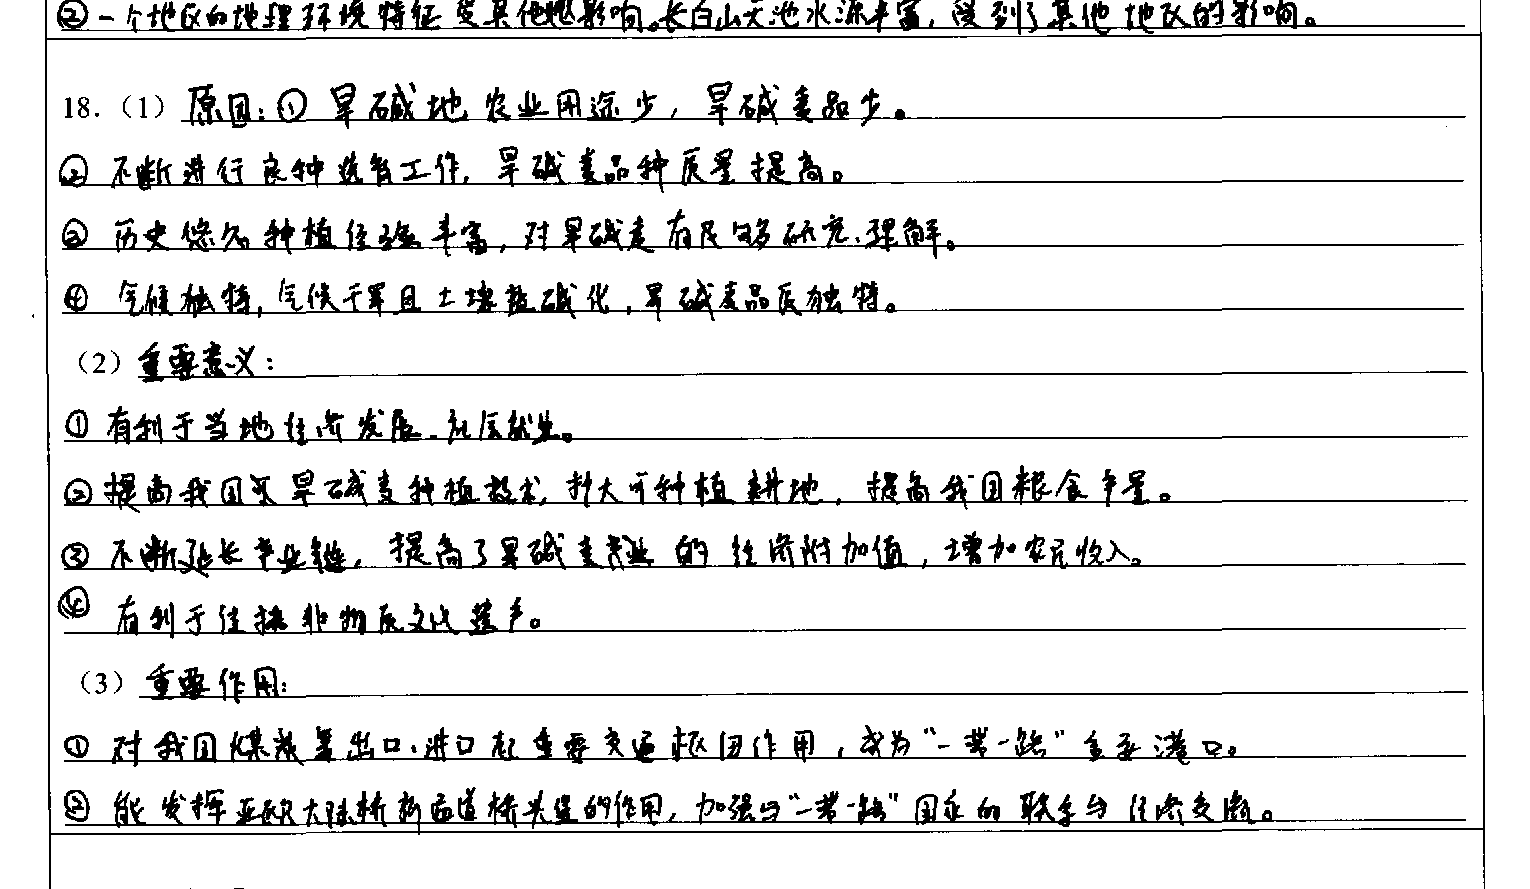 ②一个地区的地理环境特征受其他地影响。长白山天池水源丰富,受到了其他地区的影响。
18.(1)原因:①旱碱地农业用途少,旱碱麦品少。
②不断进行良种选育工作,旱碱麦品种质量提高。
③历史悠久种植经验丰富,对旱碱麦有足够研究、理解。
④气候独特,气候干旱且土壤盐碱化,旱碱麦品质独特。
(2)重要意义:
①有利于当地经济发展、社会就业。
②提高我国旱碱麦种植技术,扩大可种植耕地,提高我国粮食产量。
③不断延长产业链,提高了旱碱麦产业的经济附加值,增加农民收入。
④有利于传播非物质文化遗产。
(3)重要作用:
①对我国煤炭出口、进口起重要交通枢纽作用,成为“一带一路”重要港口。
②能发挥亚欧大陆桥新通道桥头堡的作用,加强与“一带一路”国家的联系与经济交流。